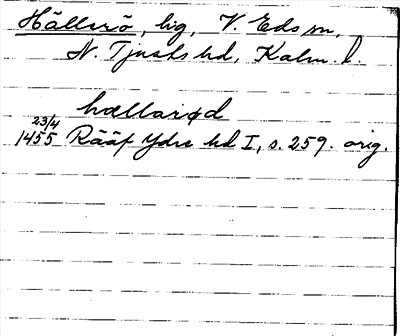 Hällerö, lig, V. Eds sn,
N. Tjusts hd, Kalm. l.
hællarød
23/4
1455 Rääf Ydre hd I, s. 259. orig.